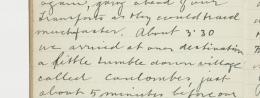 again, going ahead of our
transports as they could travel
much faster. About 3'30
we arrived at our destination
a little tumble down village
called Coulombes, just
about 5 minutes before our